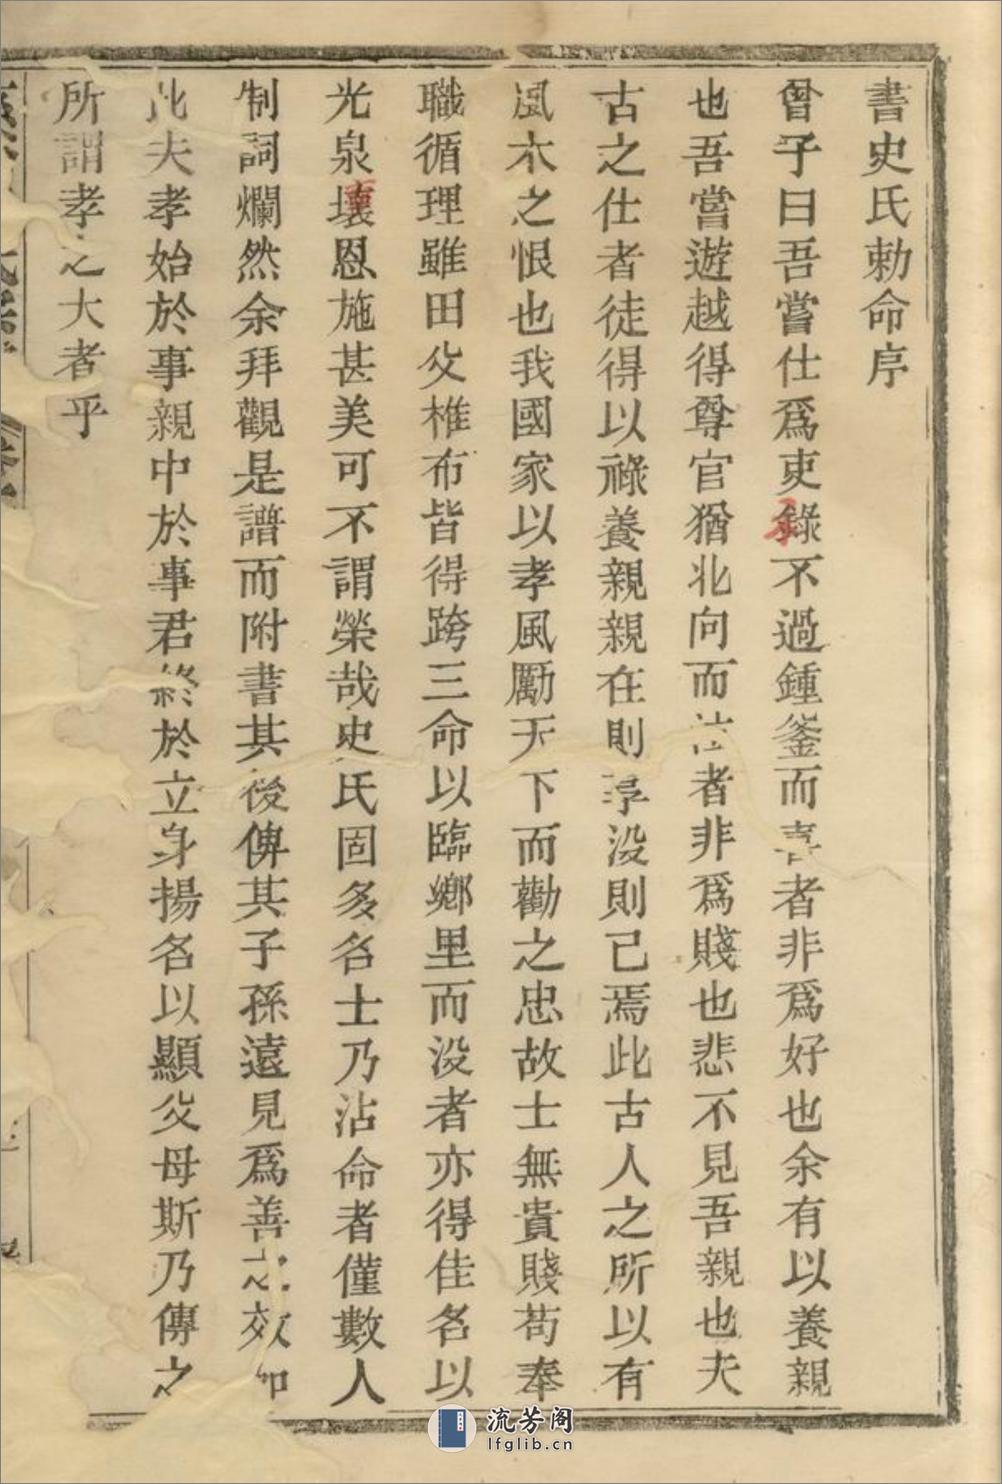 書史氏勅命序
曾子曰吾嘗仕爲吏錄不過鍾釜而喜者非爲好也余有以養親
也吾嘗遊越得尊官猶北向而泣者非爲賤也悲不見吾親也夫
古之仕者徒得以祿養親親在則享没則已焉此古人之所以有
風木之恨也我國家以孝風勵天下而勸之忠故士無貴賤苟奉
職循理雖田父椎布皆得跨三命以臨鄉里而没者亦得佳名以
光泉壤恩施甚美可不謂榮哉史氏固多名士乃沾命者僅數人
制詞爛然余拜觀是譜而附書其後俾其子孫遠見爲善之效如
此夫孝始於事親中於事君終於立身揚名以顯父母斯乃傳之
所謂孝之大者乎
流芳阁
lfglib.cn